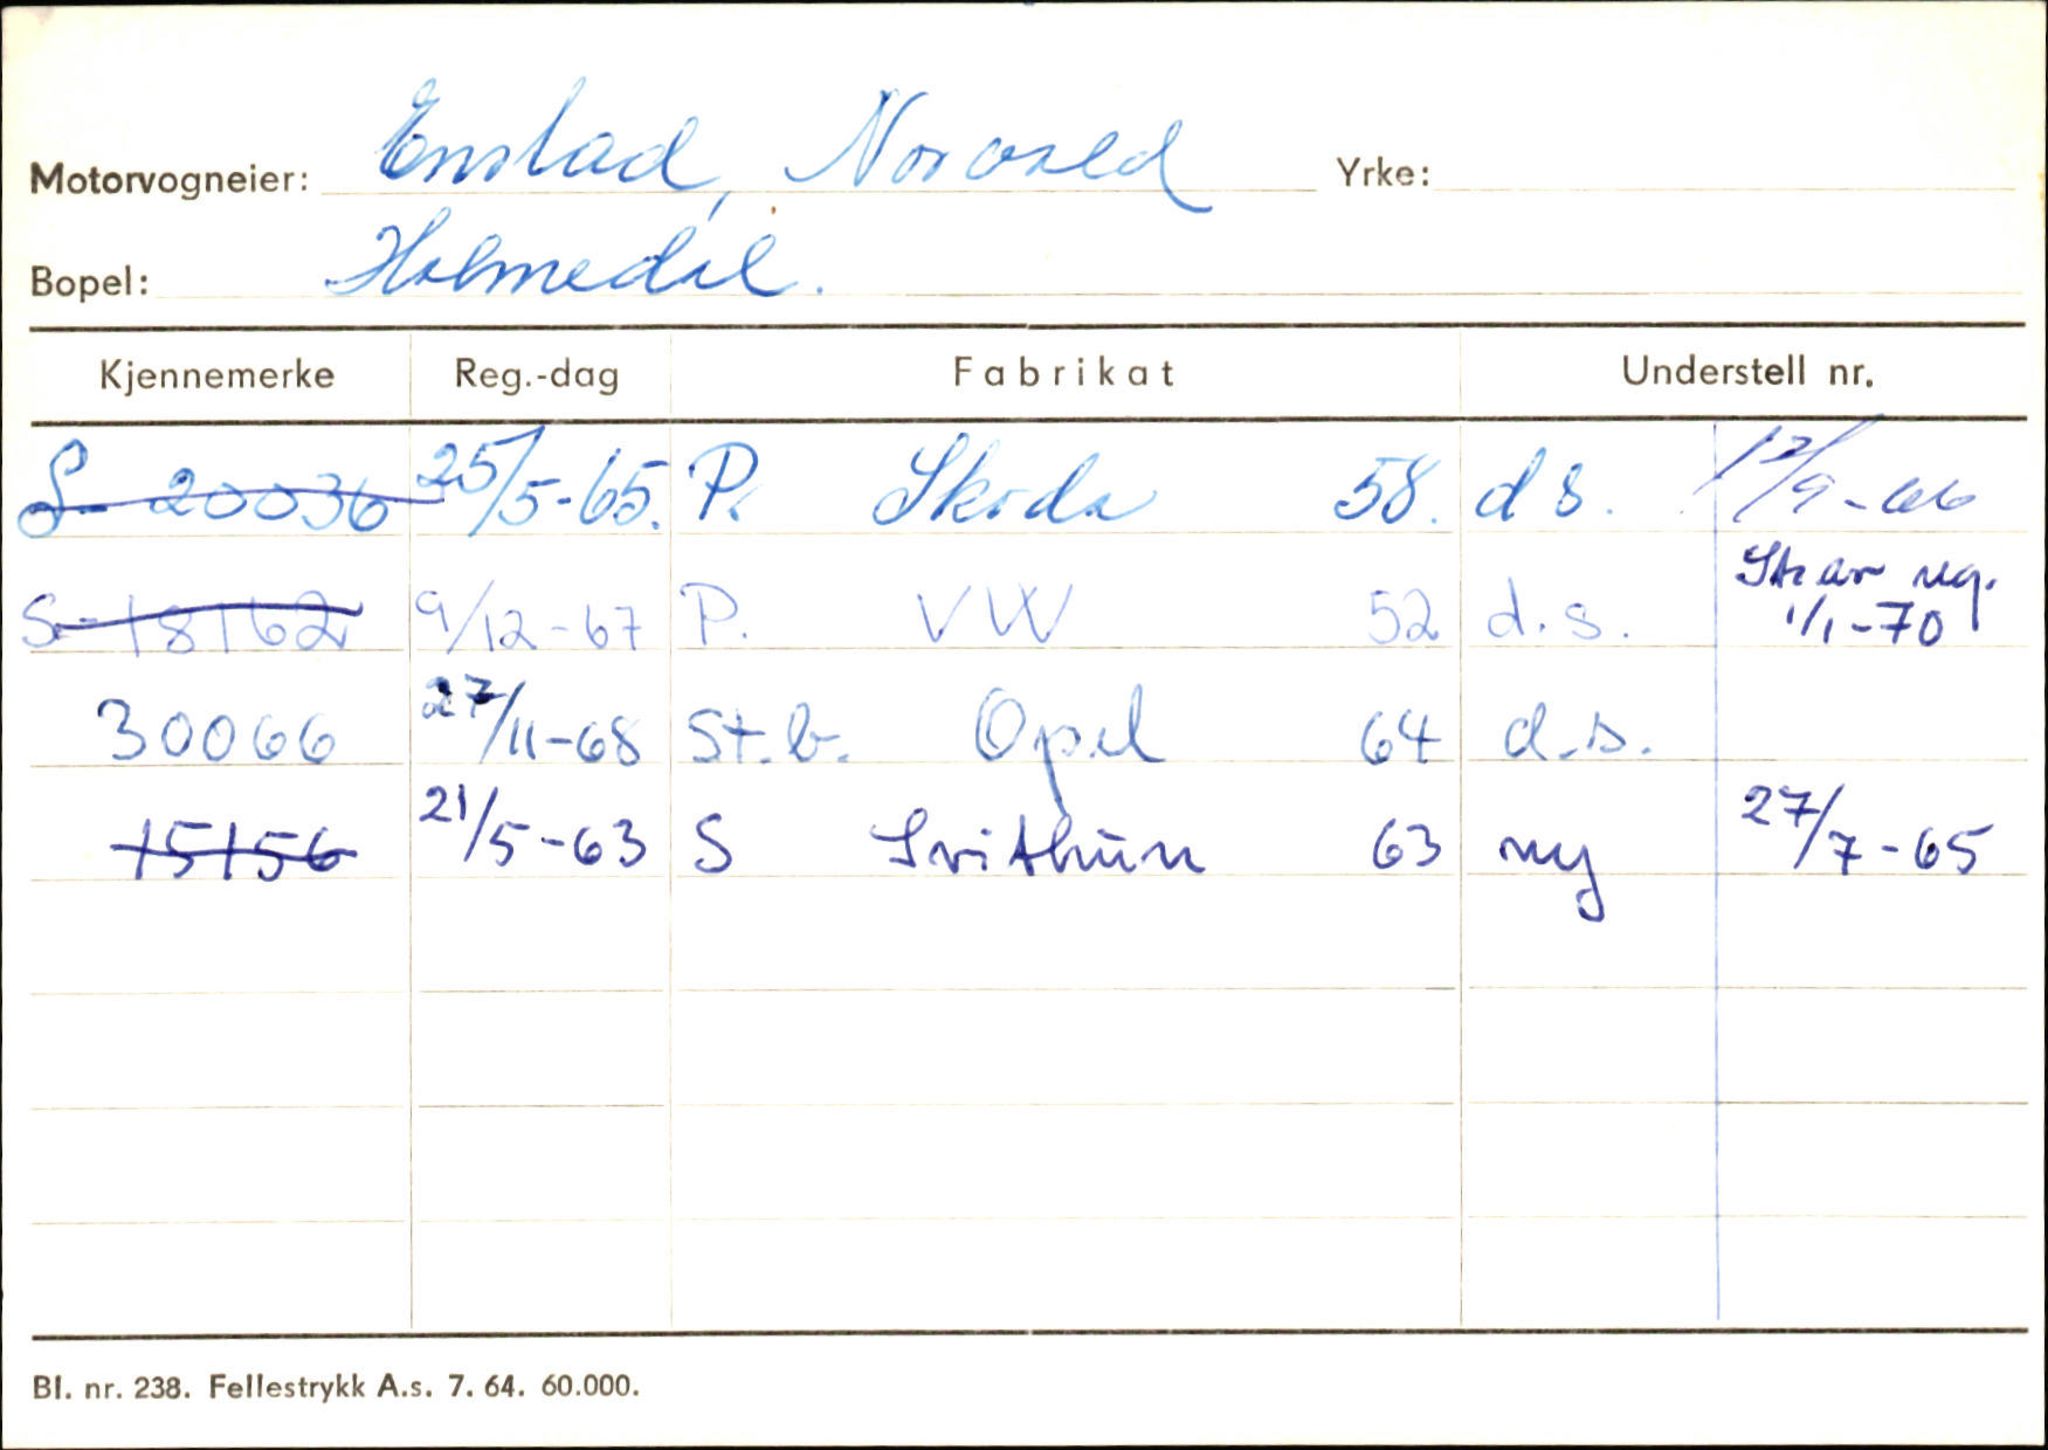 Motorvogneier: Enstad, Norvald Yrke:
Bopel: Holmedal.
Kjennemerke Reg.-dag Fabrikat Understell nr.
S-20036 25/5-65. P. Skoda 58. d s. 12/9-66
S-18162 9/12-67 P. VW 52 d.s. reg. 1/1-70
30066 27/11-68 St.b. Opel 64 d.s.
15156 21/5-63 S Svithun 63 ny 27/7-65
Bl. nr. 238. Fellestrykk A.s. 7. 64. 60.000.